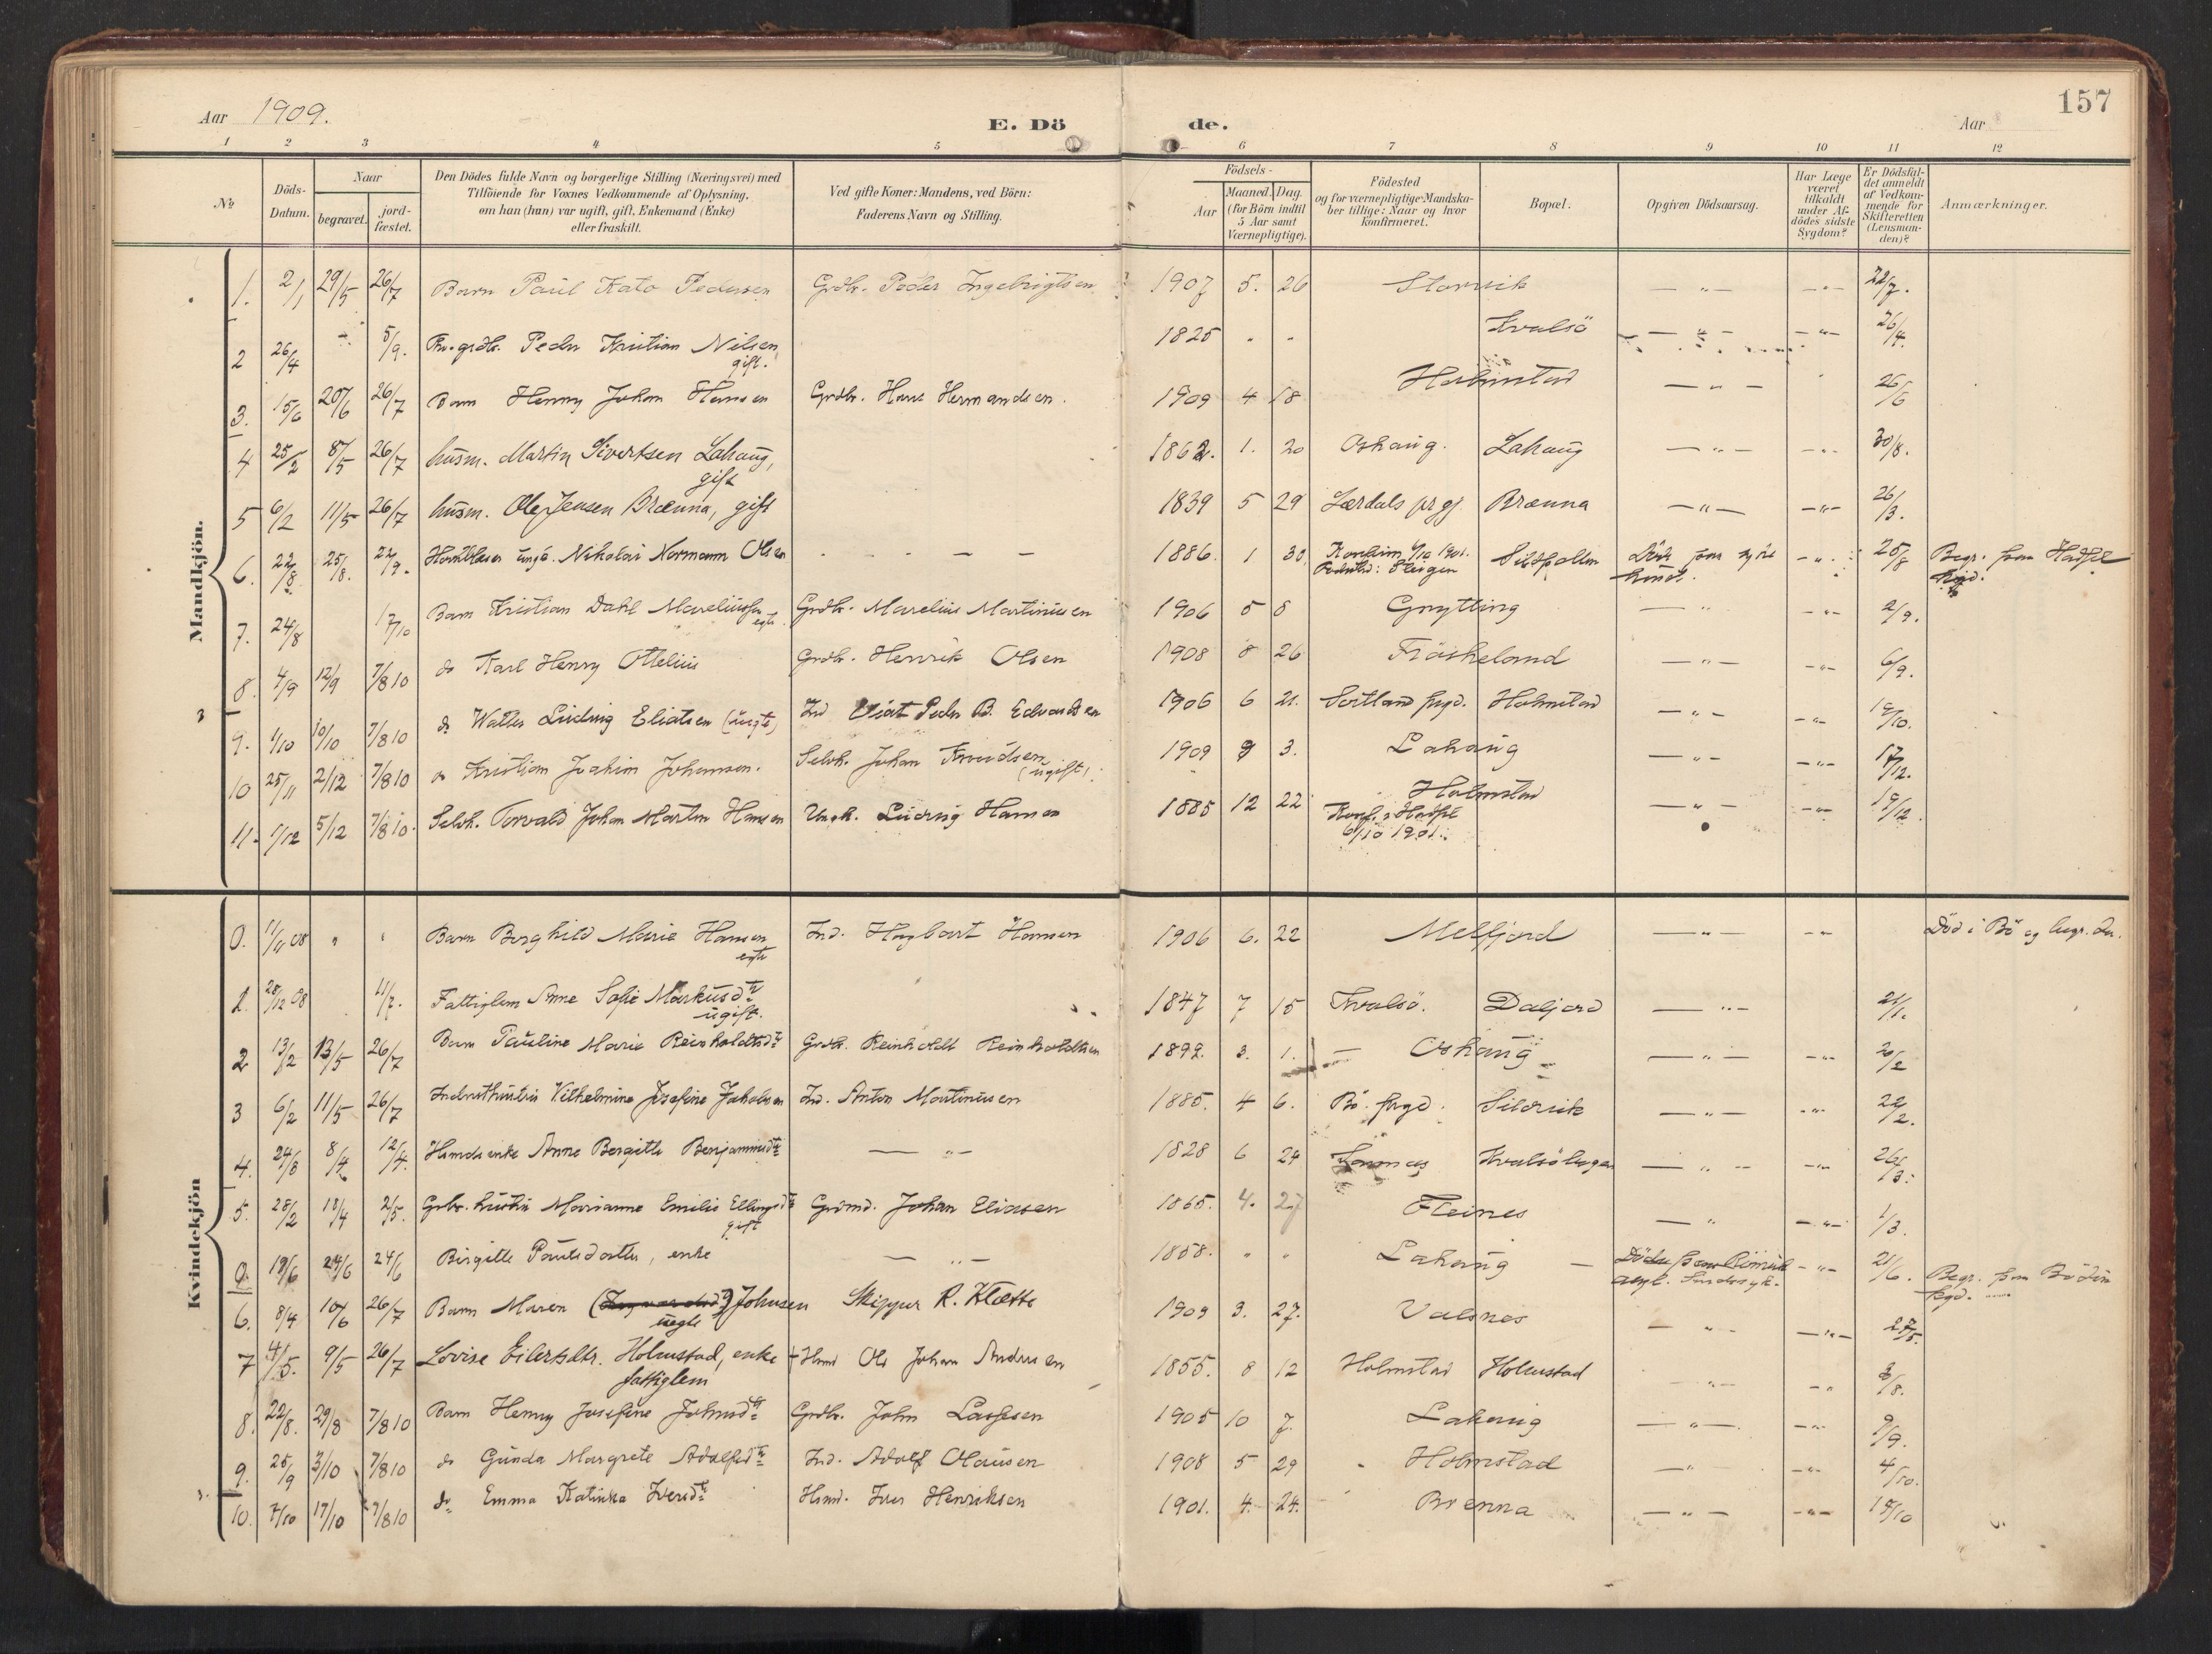 157
Aar 1909.
E. Dö de.
Aar
1 2 3 4 5 6 7 8 9 10 11 12
No
Döds-Datum.
Naar
begravet.
jord-fæstet.
Den Dödes fulde Navn og borgerlige Stilling (Næringsvei) med
Tilföiende for Voxnes Vedkommende af Oplysning,
om han (hun) var ugift, gift, Enkemand (Enke)
eller fraskilt.
Ved gifte Koner: Mandens, ved Börn:
Faderens Navn og Stilling.
Födsels-
Aar
Maaned. Dag.
(for Börn indtil
5 Aar samt
Værnepligtige).
Födested
og for værnepligtige Mandska-
ber tillige: Naar og hvor
konfirmeret.
Bopæl.
Opgiven Dödsaarsag.
Har Læge
været
tilkaldt
under Af-
dödes sidste
Sygdom?
Er Dödsfal-
det anmeldt
af Vedkom-
mende for
Skifteretten
(Lensman-
den)?
Anmærkninger.
Mandkjön.
1. 2/1 29/5 26/7 Barn Paul Kato Pedersen Grdbr. Peder Ingebrigtsen 1907 5. 26 Storvik — " — — " — 22/7.
2 26/4 5/9. Peder Kristian Nilsen 1825 " " Kvalsö — " — — " — 26/4.
gift.
3. 15/6 20/6 26/7 Barn Henry Johan Hansen Grdbr. Hans Hermandsen. 1909 4 18 Holmstad — " — 26/6
4 25/2 8/5 26/7 husm. Martin Sivertsen Lahaug, 1862. 1. 20 Oshaug. Lahaug — " — — " — 30/8.
gift
5 6/2 11/5 26/7 husm. Ole Jensen Brænna, gift 1839 5 29 Lærdals prgj Brænna — " — — " — 26/3.
6. 22/8 25/8. 22/9. Nikolai Normann Olsen — — 1886. 1 30 1901. Steigen — " — 25/8 Begr. fra Hadsel
7. 24/8 17/10 Barn Kristian Dahl Grdbr. Marelius Martinusen 1906 5 8 Gnytting — " — " — 2/9.
egte
8. 4/9 12/9 7/8 10 do Karl Henry Ottelius Grdbr. Henrik Olsen 1908 8 26 Fröskeland — " — — " — 6/9.
9. 1/10 10/10 7/8 10 do Walter Ludvig Eliatsen (uegte) Ind Peder B. Edvardsen 1906 6 21. Sortland prgd. Holmstad — " — — " —
10 25/11 2/12 7/8 10 do Kristian Joakim Johansen. Selvh. Johan Knudsen 1909 9 3. Lahaug — " — — " — 17/12.
(ugift)
11. 1/12 5/12 7/8 10. Selvh. Torvald Johan Martin Hansen Ungk. Ludvig Hansen 1885 12 22 Holmstad — " — — " —
Konf. i Hadsel
6/10 1901.
Kvindekjön
0. 11/11 08 " " Barn Borghild Marie Hansen Ind. Hagbart Hansen 1906 6. 22 Melfjord — " — — " — Död i Bö og begr. der.
egte
1. 28/12 08 11/7. Fattiglem Anne Sofie Markusdtr 1847 7 15 Kvalsö. Daljord — " — 21/1.
ugift.
2 13/2 13/5 26/7 Barn Pauline Marie Reinholdtsdtr Grdbr. Reinholdt Reinholdtsen 1899. 3. 1. Oshaug — " — — " — 20/2
3 6/2 11/5 26/7 Indersthustru Vilhelmine Josefine Jakobsen Ind. Anton Martinusen 1885. 4 6. Bö. prgd. Sildvik — " — — " — 22/2.
4. 24/3 8/4 12/4. Hmds enke Anne Bergitte Benjaminsdtr — " — 1828 6 24 — " — — " — 26/3.
5. 28/2 18/4 2/5. Grbr. hustru Marianne Emilie Ellingsdtr Grdmd. Johan Eliasen 1865. 4. 27 Fleines — " — " — 1/3.
gift
0. 19/6 24/6 24/6 Birgitte Paulsdatter, enke — " — 1858. " " Lahaug — — " — 21/6. Begr. fra Bodin
prgd.
6. 8/4 10/6 26/7 Barn Maren (Ingvardsd?) Johnsen Skipper R. Klætte 1909 3. 27. Valsnes — " — — " — 27/5.
uegte
7 4/5. 9/5 26/7 Lovise Eilertsdtr. Holmstad, enke † Hmd Ole Johan Andersen 1855. 8 12 Holmstad Holmstad — " — — " 3/8.
fattiglem
8. 22/8. 29/8 7/8 10 Barn Henny Josefine Johnsdtr Grdbr. John Lassesen 1905 10 7. Lahaug — " — — " — 9/9.
9. 25/9 3/10 7/8 10 do Gunda Margrete Adolfsdtr Ind. Adolf Olausen 1908 5 29 Holmstad — " — — " — 4/10.
10. 7/10 17/10 7/8 10 do Emma Katinka Iversdtr Hsmd. Iver Henriksen 1901. 4. 24. Brenna — " — — " — 15/10